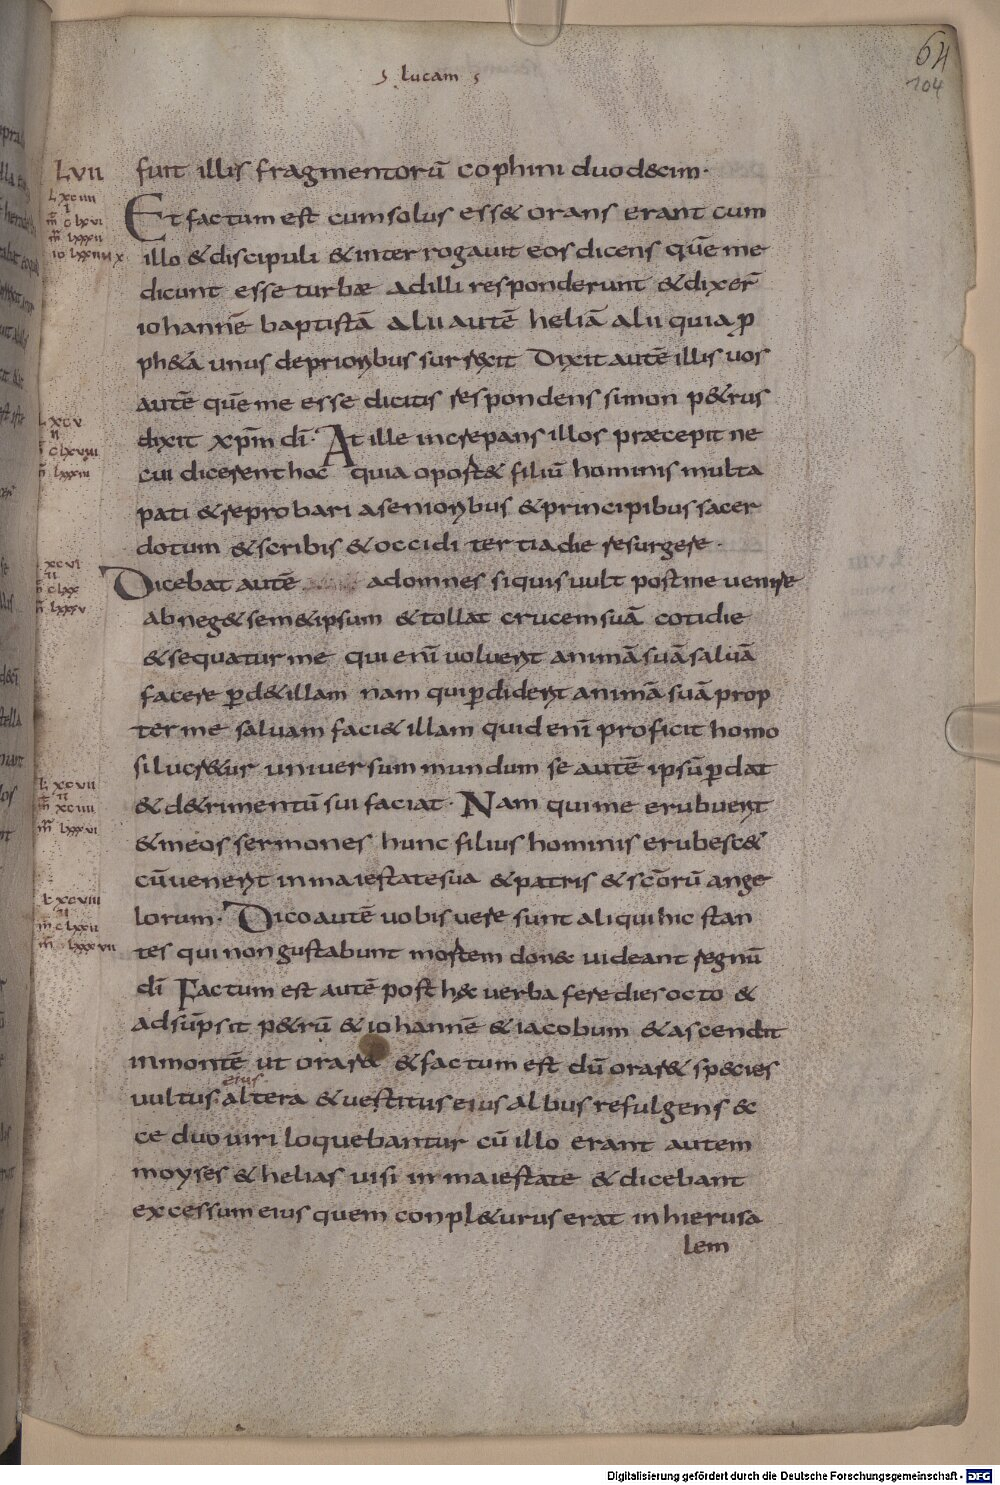 lucam
64
104
Lvii
fuit illis fragmentorū cophini duod&cim·
Et factum est cum solus ess& orans erant cum
illo & discipuli & interrogavit eos dicens quē me
dicunt esse turbæ adilli responderunt & dixer̄
iohannē baptistā alii autē heliā alii quia ꝓ
ph&ā unus deprioribus surrexit Dixit autē illis uos
autē quē me esse dicitis respondens simon p&rus
dixit xp̄m dī· At ille increpans illos præcepit ne
cui dicerent hoc quia oport& filiū hominis multa
pati & reprobari asenioribus & principibus sacer
dotum & scribis & occidi tertiadie resurgere·
Dicebat autē adomnes siquis uult postme uenire
abneg& sem&ipsum & tollat crucem suā cotidie
& sequatur me qui enī uoluerit animā suā saluā
facere ꝑd& illam nam qui ꝑdiderit animā suā prop
ter me saluam faci& illam quid enī proficit homo
si lucr&ur universum mundum se autē ipsū ꝑdat
& d&rimentū sui faciat· Nam qui me erubuerit
& meos sermones hunc filius hominis erubesc&
cū venerit in maiestate sua & patris & sc̄orū ange
lorum· Dico autē uobis vere sunt aliqui hic stan
tes qui non gustabunt mortem donec uideant regnū
dī Factum est autē post hæc verba fere dies octo &
adsūpsit p&rū & iohannē & iacobum & ascendit
in montē ut orar& & factum est dū orar& species
eius
vultus altera & vestitus eius albus refulgens &
ce duo uiri loquebantur cū illo erant autem
moyses & helias visi in maiestate & dicebant
excessum eius quem conpl&urus erat in hierusa
lem
Digitalisierung gefördert durch die Deutsche Forschungsgemeinschaft - DFG